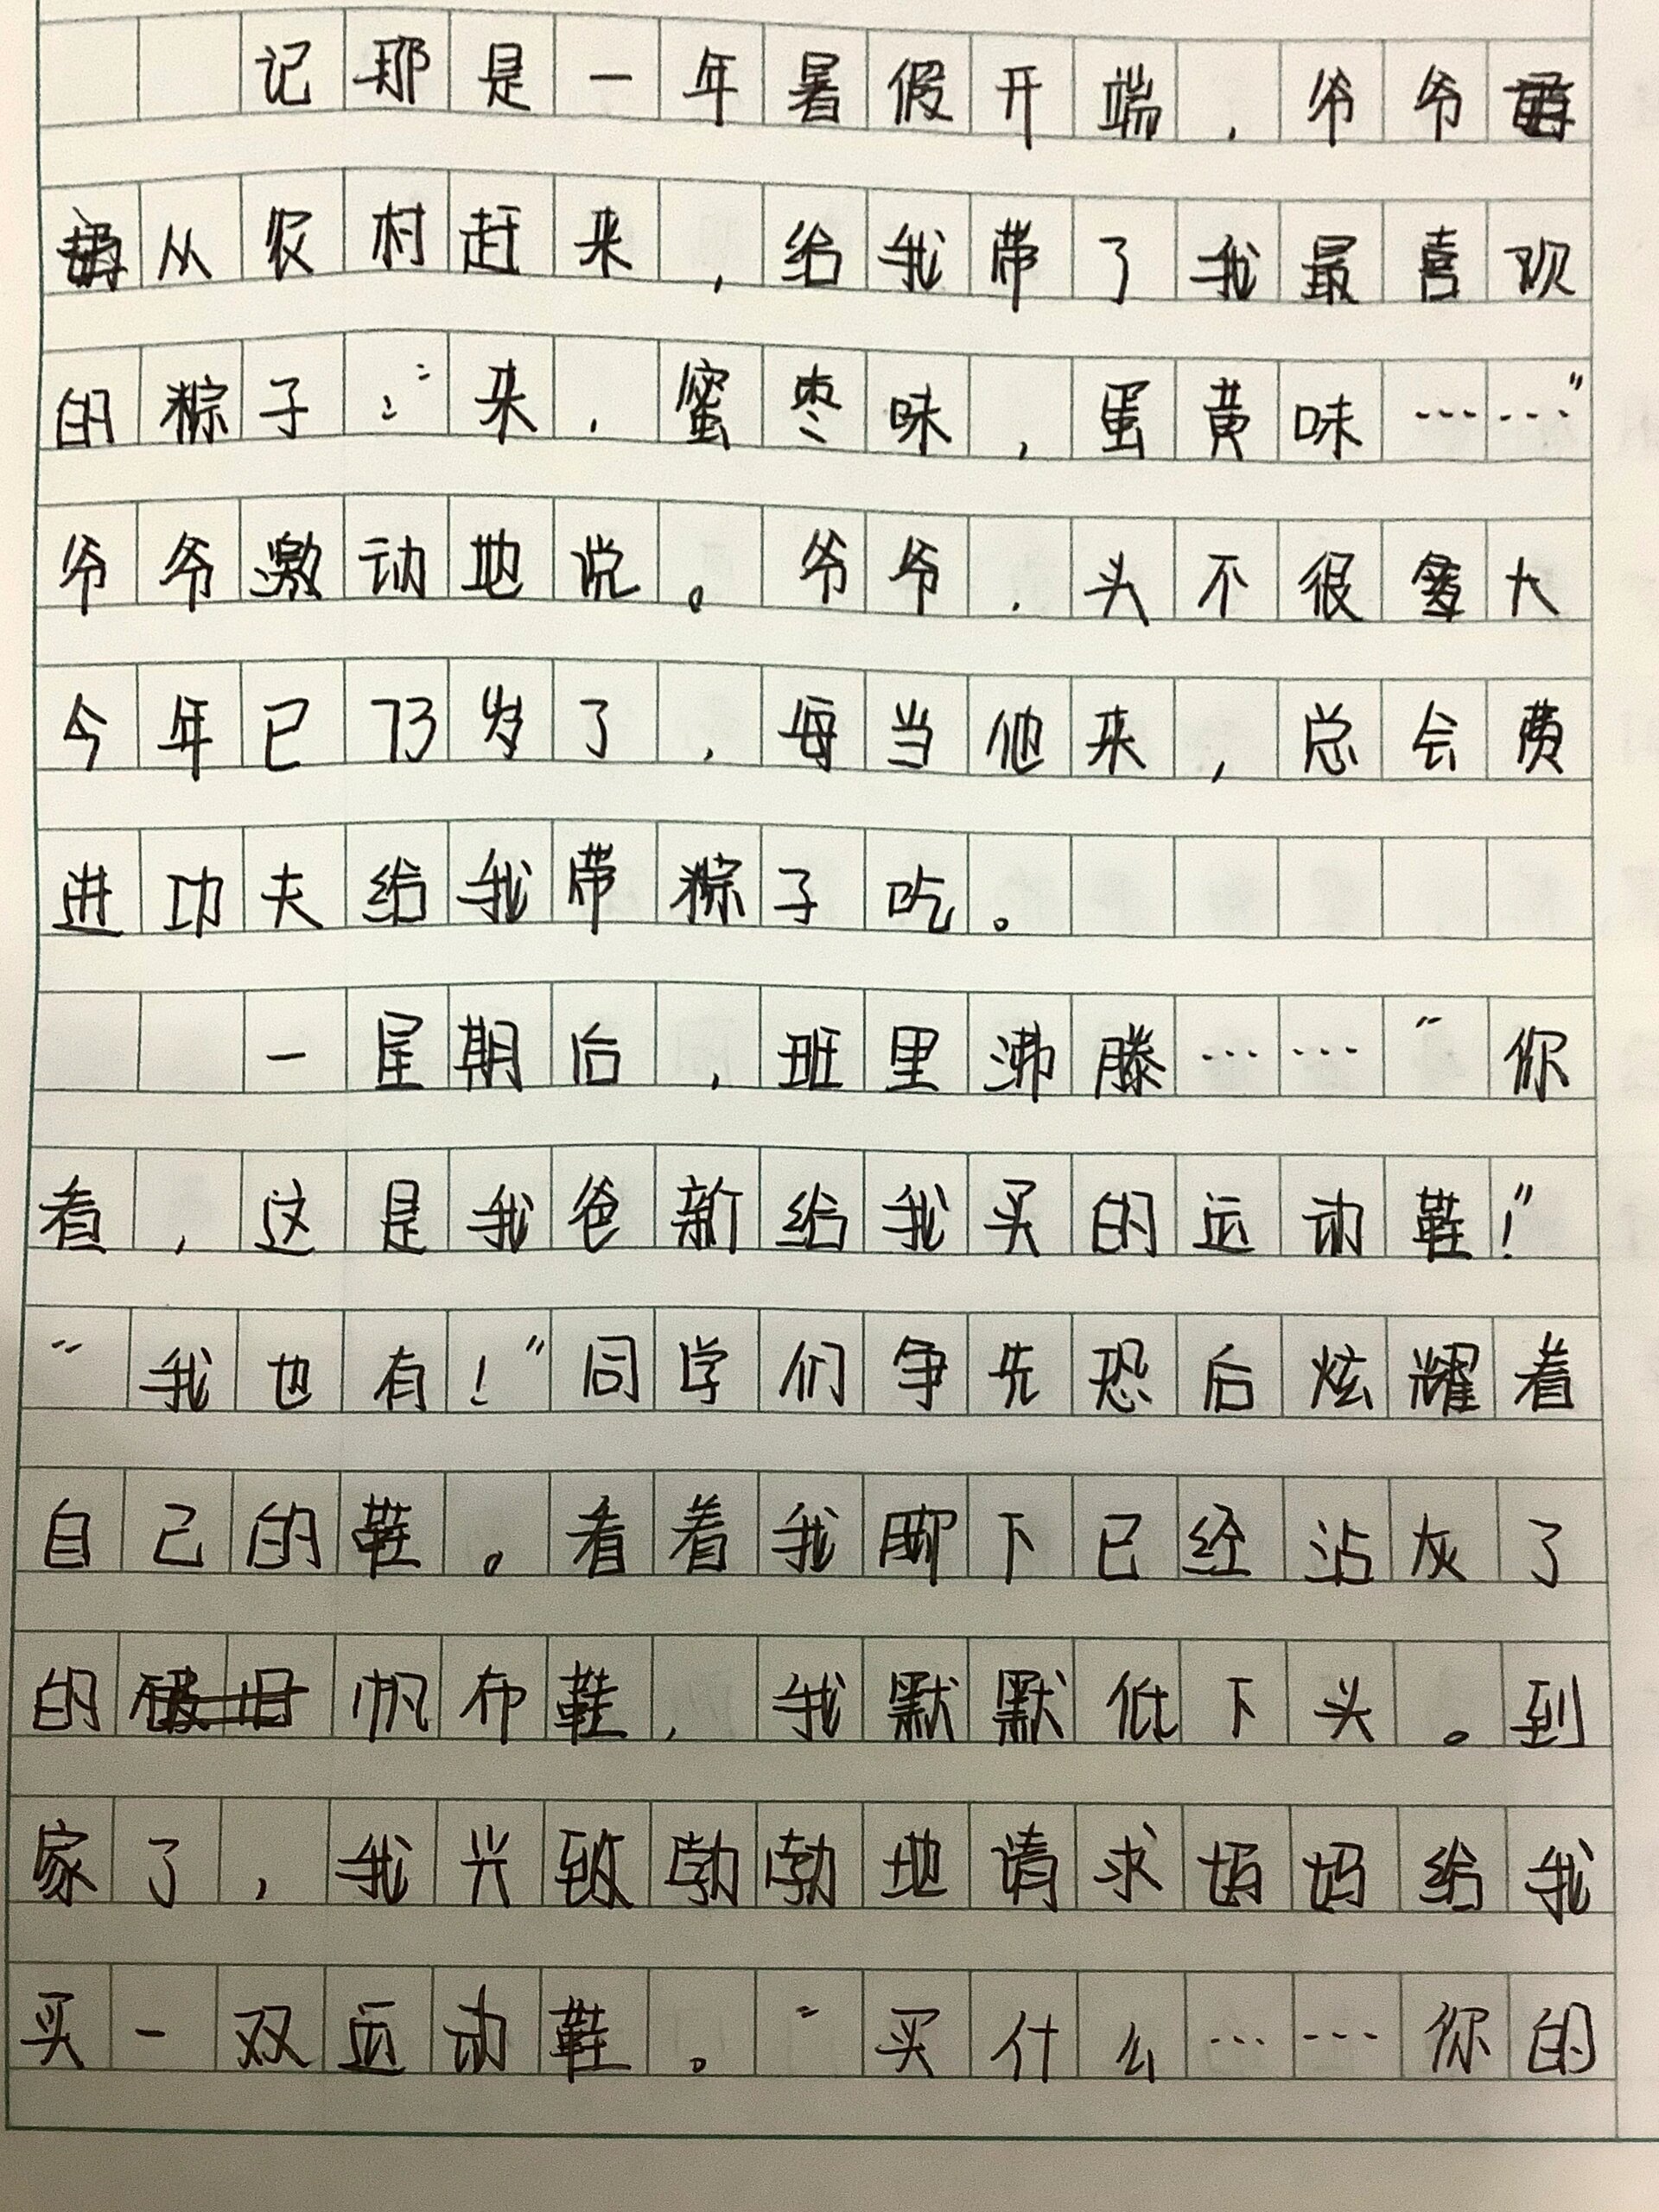 记那是一年暑假开端，爷爷
从农村赶来，给我带了我最喜欢
的粽子：“来，蜜枣味，蛋黄味……”
爷爷激动地说。爷爷，头不很大
今年已73岁了，每当他来，总会费
进功夫给我带粽子吃。
一星期后，班里沸腾……“你
看，这是我爸新给我买的运动鞋！”
“我也有！”同学们争先恐后炫耀着
自己的鞋。看着我脚下已经沾灰了
的帆布鞋，我默默低下头。到
家了，我兴致勃勃地请求妈妈给我
买一双运动鞋。“买什么……你的